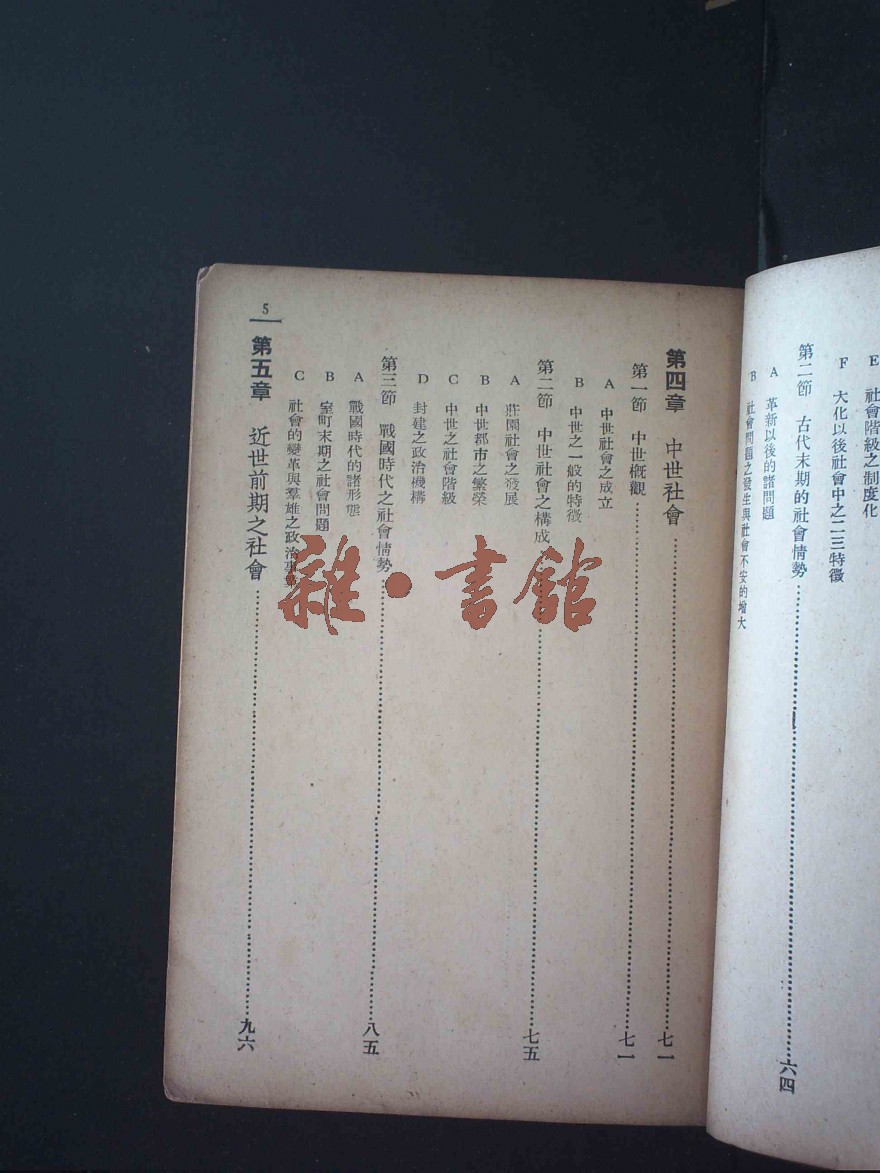 E 社會階級之制度化
F 大化以後社會中之二三特徵
第二節 古代末期的社會情勢……六四
A 革新以後的諸問題
B 社會問題之發生與社會不安的增大
第四章 中世社會……七一
第一節 中世概觀……七一
A 中世社會之成立
B 中世之一般的特徵
第二節 中世社會之構成……七五
A 莊園社會之發展
B 中世都市之繁榮
C 中世之社會階級
D 封建之政治機構
第三節 戰國時代之社會情勢……八五
A 戰國時代的諸形態
B 室町末期之社會問題
C 社會的變革與羣雄之政治事業
第五章 近世前期之社會……九六
5
雜·書館